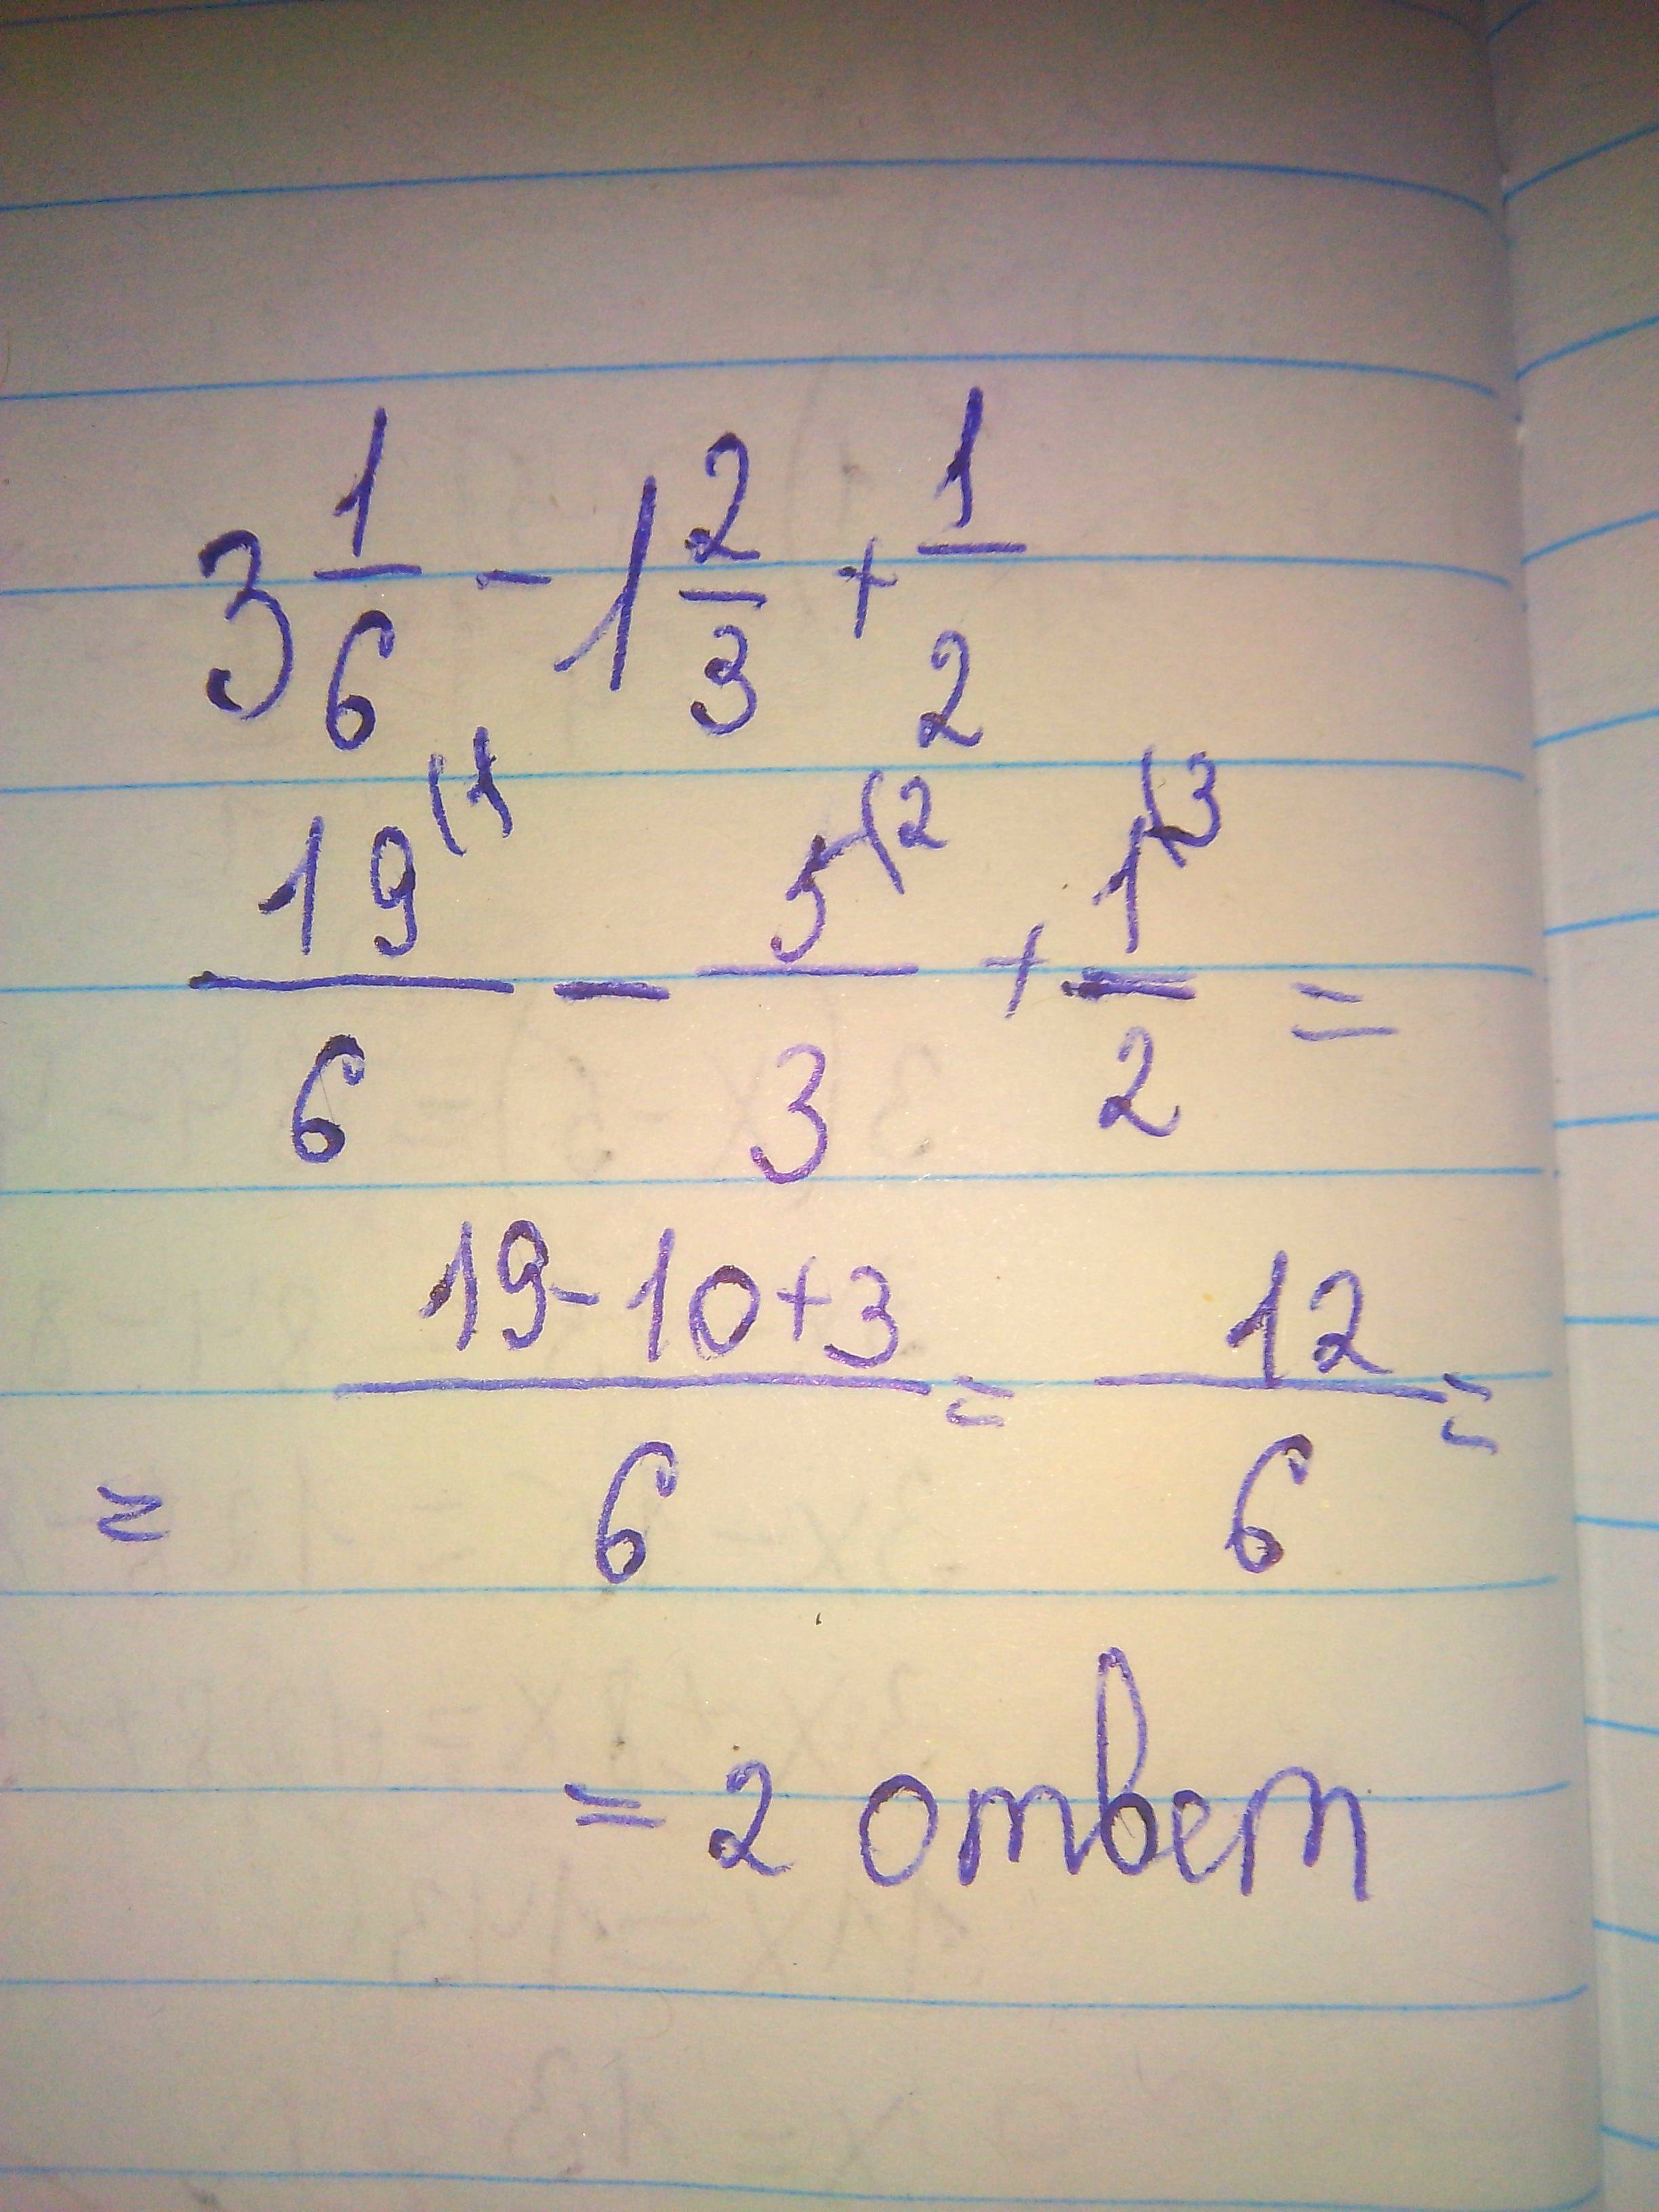 3 1/6 - 1 2/3 + 1/2
19/6 (1 - 5/3 (2 + 1/2 (3 =
= 19-10+3/6 = 12/6 =
= 2 ответ